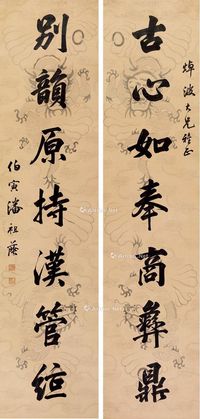 焯波大兄雅正
古心如奉商彝鼎
別韻原持漢管絃
伯寅潘祖蔭